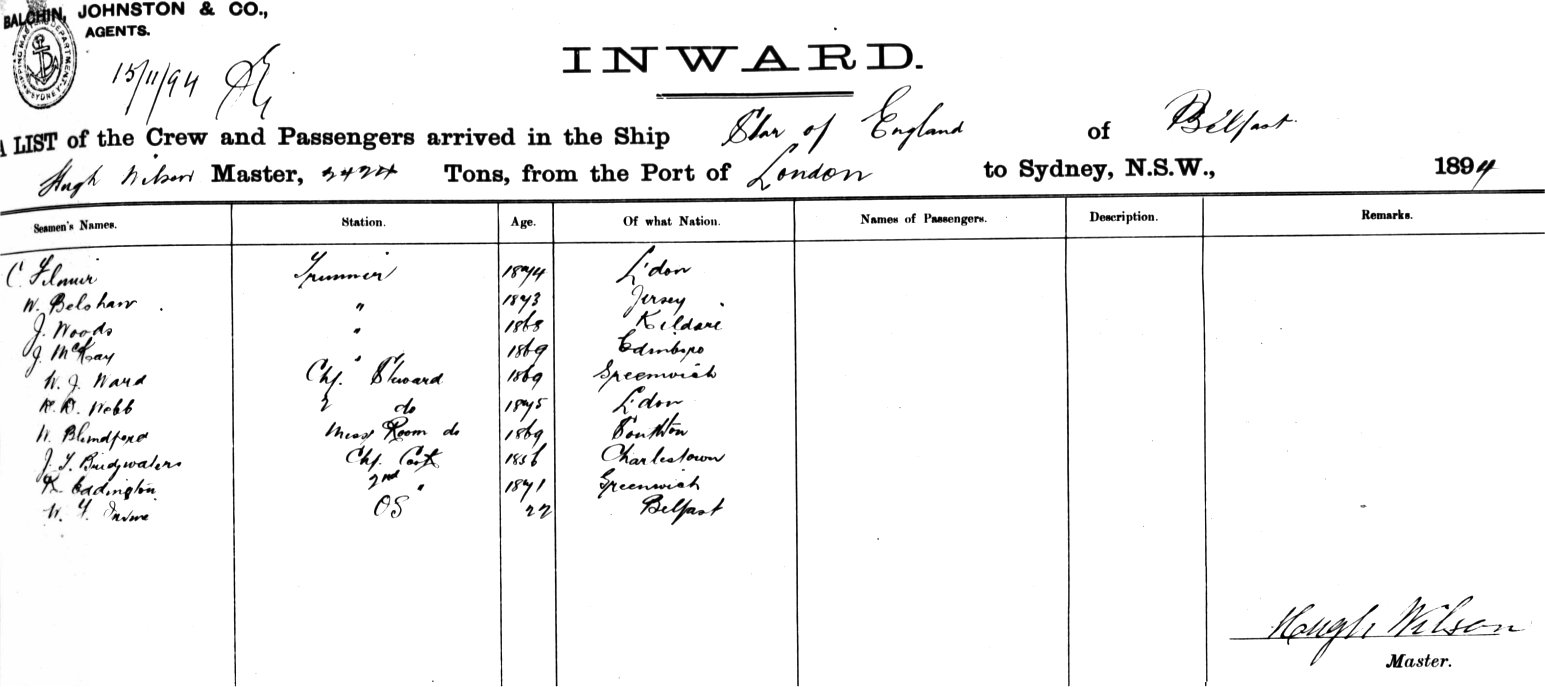 BALCHIN, JOHNSTON & CO.,
AGENTS.
SHIPPING MASTERS DEPARTMENT SYDNEY
15/11/94
INWARD.
A LIST of the Crew and Passengers arrived in the Ship Star of England of Belfast
Hugh Wilson Master, 2424 Tons, from the Port of London to Sydney, N.S.W., 1894
Seamen's Names. Station. Age. Of what Nation. Names of Passengers. Description. Remarks.
C. Trimmer 1874 L'don
W. Belshaw " 1873 Jersey
J. Woods " 1868 Kildare
J. McKay " 1869 Edinboro
W. J. Ward Chf. Steward 1869 Greenwich
R. D. Webb 2 do 1875 L'don
W. Blandford Mess Room do 1869 Southton
J. T. Bridgwaters Chf. Cook 1856 Charlestown
R. Eddington 2nd " 1871 Greenwich
W. F. Irvine OS 22 Belfast
Hough Wilson
Master.